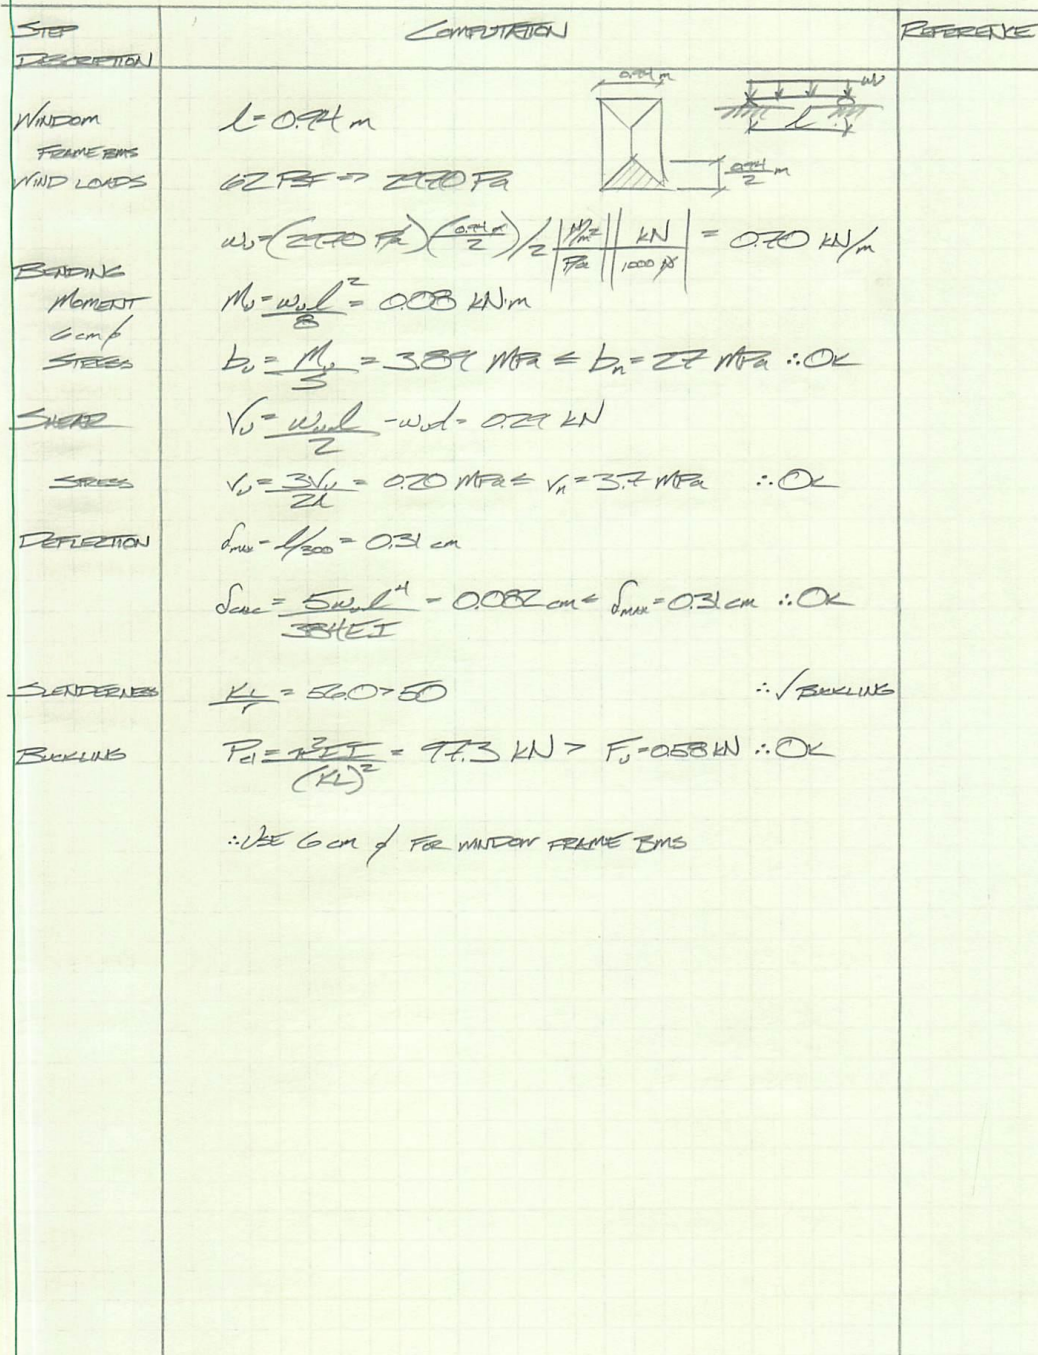 STEP DESCRIPTION
COMPUTATION
REFERENCE
0.94 m
w
WINDOW FRAME BMS
l = 0.94 m
l
0.94/2 m
WIND LOADS
62 PSF => 2970 Pa
wᵤ = (2970 Pa)(0.94 m/2)/2 |N/m²/Pa||kN/1000 N| = 0.70 kN/m
BENDING
MOMENT
Mᵤ = wᵤl²/8 = 0.08 kN·m
6 cm ϕ
STRESS
bᵤ = Mᵤ/S = 3.89 MPa ≤ bₙ = 27 MPa ∴ OK
SHEAR
Vᵤ = wᵤl/2 - wᵤd = 0.29 kN
STRESS
vᵤ = 3Vᵤ/2A = 0.20 MPa ≤ vₙ = 3.7 MPa ∴ OK
DEFLECTION
δmax = l/300 = 0.31 cm
δcalc = 5wᵤl⁴/384EI = 0.082 cm ≤ δmax = 0.31 cm ∴ OK
SLENDERNESS
KL/r = 56.0 > 50 ∴ √ BUCKLING
BUCKLING
Pel = π²EI/(KL)² = 97.3 kN > Fᵤ = 0.58 kN ∴ OK
∴ USE 6 cm ϕ FOR WINDOW FRAME BMS